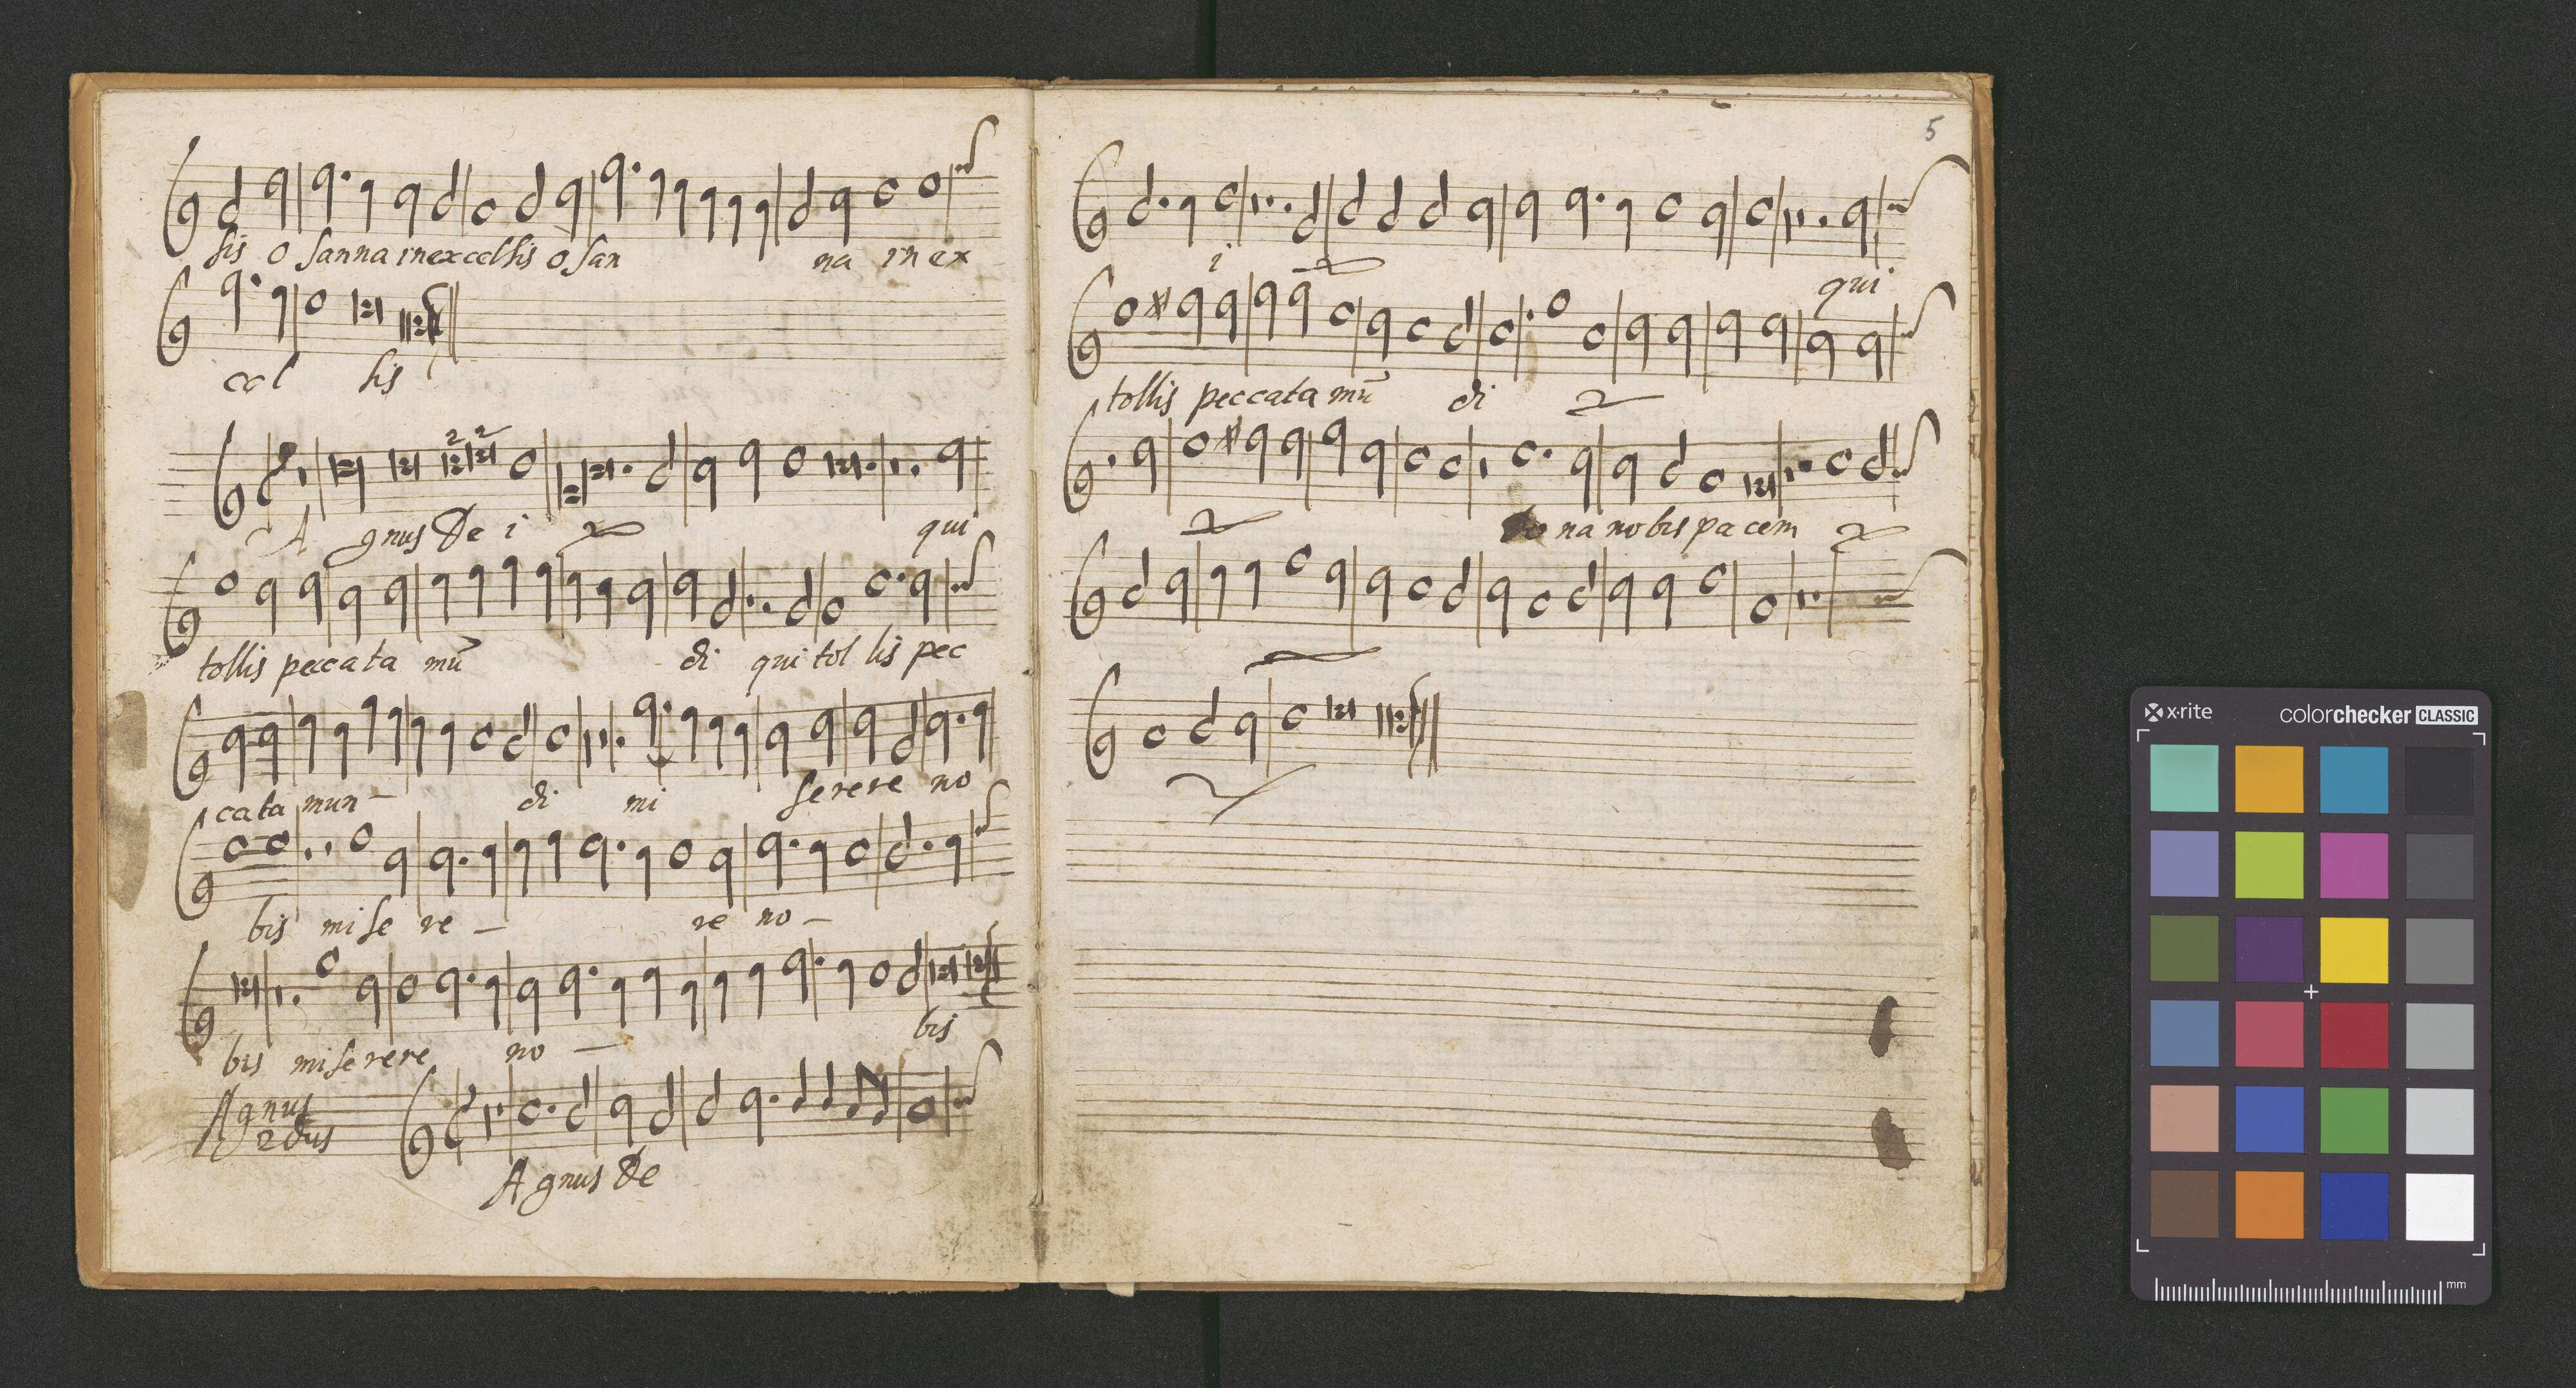 sis o sanna in excelsis o san na in ex
cel sis
2 2
A gnus De i qui
tollis peccata mū di qui tol lis pec
cata mun - di mi serere no
bis mise re - re no -
bis miserere no - bis
Agnus
2dus
A gnus De
5
i qui
tollis peccata mū di
do na nobis pa cem
x-rite
colorchecker CLASSIC
mm